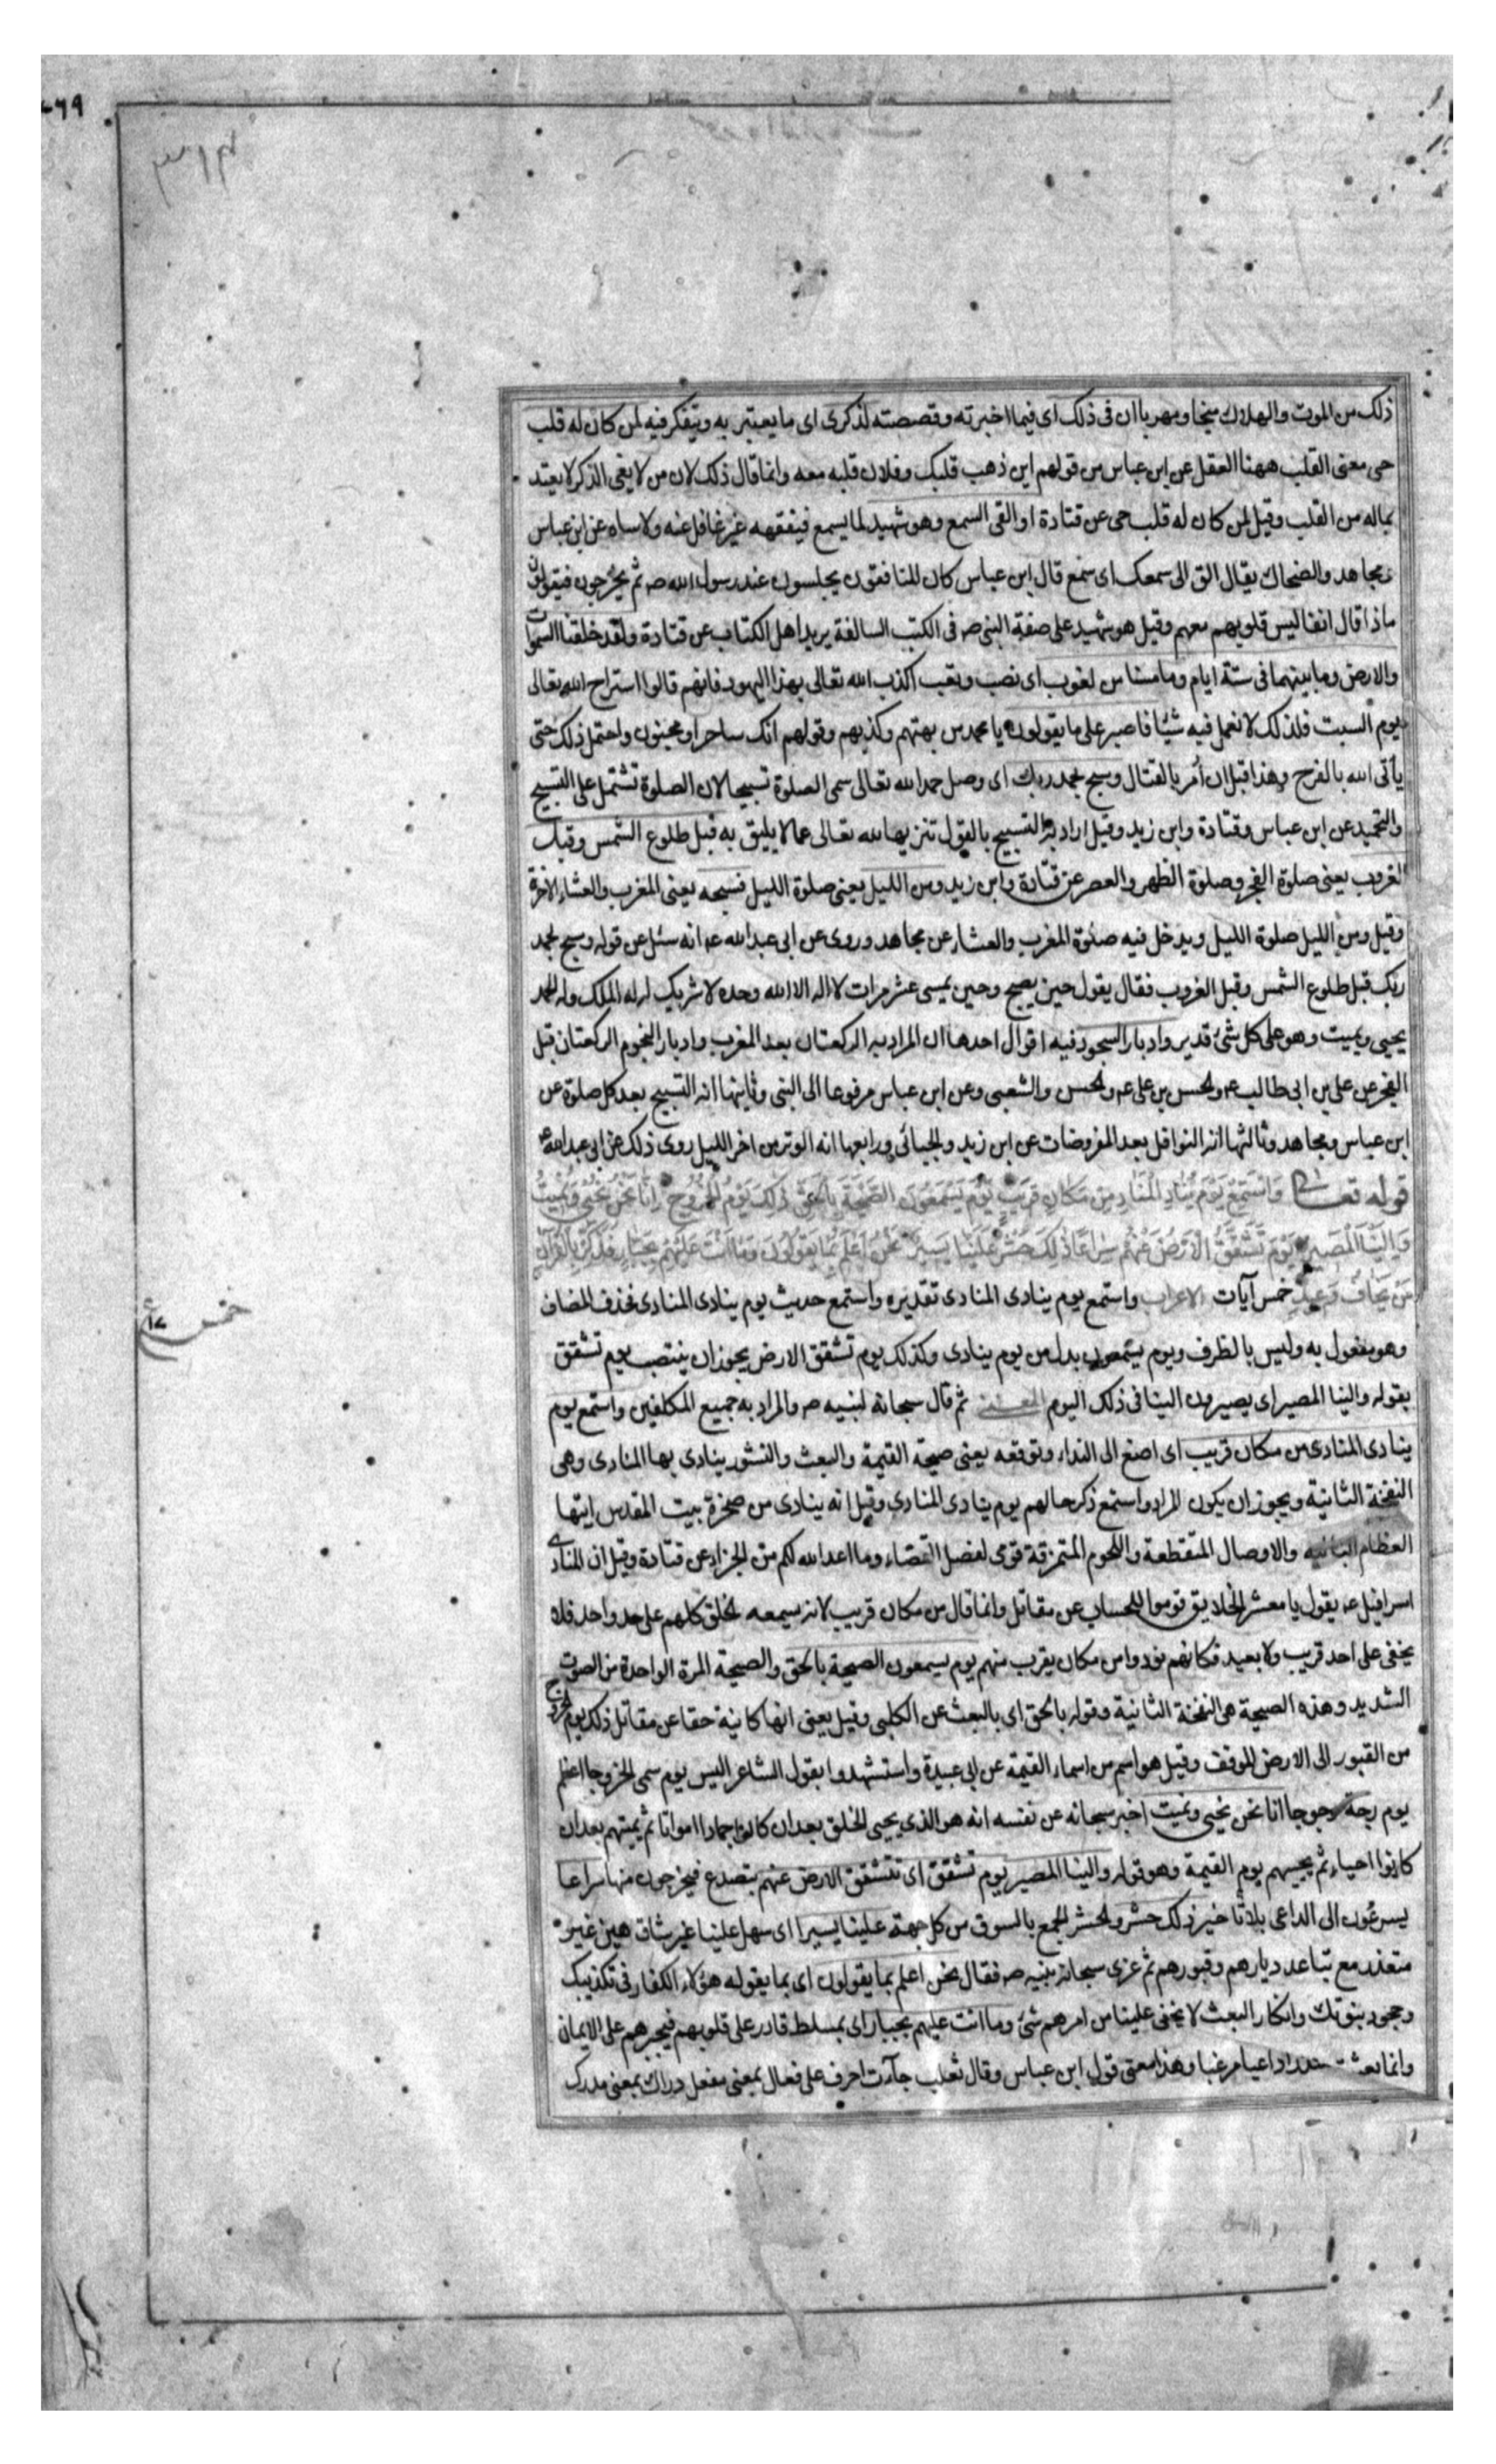 ذلك من الموت والهلاك منجا ومهربا ان في ذلك اي فيما اخبرته وقصصته لذكرى اي ما يعتبر به ويتفكر فيه لمن كان له قلب
حى معنى القلب ههنا العقل عن ابن عباس من قولهم اين ذهب قلبك وفلان قلبه معه وانما قال ذلك لان من لا يعى الذكر لا يعتد
بماله من القلب وقيل لمن كان له قلب حى عن قتادة او القى السمع وهو شهيد لما يسمع فيفقهه غير غافل عنه ولا ساه عن ابن عباس
ومجاهد والضحاك يقال الق الى سمعك اى سمع قال ابن عباس كان المنافقون يجلسون عند رسول الله صم ثم يخرجون فيقولون
ماذا قال انفا ليس قلوبهم معهم وقيل هو شهيد على صفة النبى صم فى الكتب السالفة يريد اهل الكتاب عن قتادة ولقد خلقنا السموات
والارض وما بينهما فى ستة ايام وما مسنا من لغوب اى نصب وتعب اكذب الله تعالى بهذا اليهود فانهم قالوا استراح الله تعالى
يوم السبت فلذلك لا نعمل فيه شيئا فاصبر على ما يقولون يا محمد من بهتهم وكذبهم وقولهم انك ساحر او مجنون واحتمل ذلك حتى
يأتى الله بالفرح وهذا قبل ان أمر بالقتال وسبح بحمد ربك اى وصل حمد الله تعالى سمى الصلوة تسبيحا لان الصلوة تشتمل على التسبيح
والتحميد عن ابن عباس وقتادة وابن زيد وقيل اراد به التسبيح بالقول تنزيها لله تعالى عما لا يليق به قبل طلوع الشمس وقبل
الغروب يعنى صلوة الفجر وصلوة الظهر والعصر عن قتادة وابن زيد ومن الليل يعنى صلوة الليل فسبحه يعنى المغرب والعشاء الاخرة
وقيل ومن الليل صلوة الليل ويدخل فيه صلوة المغرب والعشاء عن مجاهد وروى عن ابى عبد الله عم انه سئل عن قوله وسبح بحمد
ربك قبل طلوع الشمس وقبل الغروب فقال يقول حين يصبح وحين يمسى عشر مرات لا اله الا الله وحده لا شريك له له الملك وله الحمد
يحيى ويميت وهو على كل شئ قدير وادبار السجود فيه اقوال احدها ان المراد به الركعتان بعد المغرب وادبار النجوم الركعتان قبل
الفجر عن على بن ابى طالب عم والحسن بن على عم والحسن والشعبى وعن ابن عباس مرفوعا الى النبى وثانيها انه التسبيح بعد كل صلوة عن
ابن عباس ومجاهد وثالثها انه النوافل بعد المفروضات عن ابن زيد والجبائى ورابعها انه الوتر من اخر الليل روى ذلك عن ابى عبد الله عم
قوله تعالى وَاسْتَمِعْ يَوْمَ يُنَادِ الْمُنَادِ مِنْ مَكَانٍ قَرِيبٍ يَوْمَ يَسْمَعُونَ الصَّيْحَةَ بِالْحَقِّ ذَلِكَ يَوْمُ الْخُرُوجِ إِنَّا نَحْنُ نُحْيِي وَنُمِيتُ
وَإِلَيْنَا الْمَصِيرُ يَوْمَ تَشَقَّقُ الْأَرْضُ عَنْهُمْ سِرَاعًا ذَلِكَ حَشْرٌ عَلَيْنَا يَسِيرٌ نَحْنُ أَعْلَمُ بِمَا يَقُولُونَ وَمَا أَنْتَ عَلَيْهِمْ بِجَبَّارٍ فَذَكِّرْ بِالْقُرْآنِ
مَنْ يَخَافُ وَعِيدِ خمس آيات الاعراب واستمع يوم ينادى المنادى تقديره واستمع حديث يوم ينادى المنادى فحذف المضاف
وهو مفعول به وليس بالظرف ويوم يسمعون بدل من يوم ينادى وكذلك يوم تشقق الارض يجوز ان ينتصب يوم تشقق
بقوله والينا المصير اى يصيرون الينا فى ذلك اليوم المعنى ثم قال سبحانه لنبيه صم والمراد به جميع المكلفين واستمع يوم
ينادى المنادى من مكان قريب اى اصغ الى النداء وتوقعه يعنى صيحة القيمة والبعث والنشور ينادى بها المنادى وهى
النفخة الثانية ويجوز ان يكون المراد واستمع ذكر حالهم يوم ينادى المنادى وقيل انه ينادى من صخرة بيت المقدس ايتها
العظام البالية والاوصال المتقطعة واللحوم المتمزقة قومى لفصل القضاء وما اعد الله لكم من الجزاء عن قتادة وقيل ان المنادى
اسرافيل عم يقول يا معشر الخلايق قوموا للحساب عن مقاتل وانما قال من مكان قريب لانه يسمعه الخلق كلهم على حد واحد فلا
يخفى على احد قريب ولا بعيد فكانهم نودوا من مكان يقرب منهم يوم يسمعون الصيحة بالحق والصيحة المرة الواحدة من الصوت
الشديد وهذه الصيحة هى النفخة الثانية وقوله بالحق اى بالبعث عن الكلبى وقيل يعنى انها كاينة حقا عن مقاتل ذلك يوم الخروج
من القبور الى الارض الموقف وقيل هو اسم من اسماء القيمة عن ابى عبيدة واستشهدوا بقول الشاعر اليس يوم سمى الخروجا اعظم
يوم رجة رجوجا انا نحن نحيى ونميت اخبر سبحانه عن نفسه انه هو الذى يحيى الخلق بعد ان كانوا جمادا امواتا ثم يميتهم بعد ان
كانوا احياء ثم يحييهم يوم القيمة وهو قوله والينا المصير يوم تشقق اى تتشقق الارض عنهم بتصدع فيخرجون منها سراعا
يسرعون الى الداعى بلا تأخير ذلك حشر والحشر الجمع بالسوق من كل جهة علينا يسيرا اى سهل علينا غير شاق هين غير
متعذر مع تباعد ديارهم وقبورهم ثم عزى سبحانه نبيه صم فقال نحن اعلم بما يقولون اى بما يقوله هؤلاء الكفار فى تكذيبك
وجحود نبوتك وانكار البعث لا يخفى علينا من امرهم شئ وما انت عليهم بجبار اى بمسلط قادر على قلوبهم فيجبرهم على الايمان
وانما بعثت داعيا مرغبا وهذا معنى قول ابن عباس وقال ثعلب جآءت احرف على فعال بمعنى مفعل دراك بمعنى مدرك
خمس